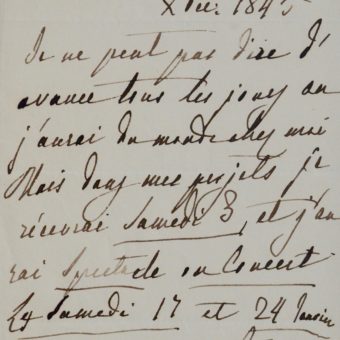 Xbre. 1845
Je ne peut pas dire d'
avance tous les jours ou
j'aurai du monde chez moi
Mais dans mes projets je
recevrai Samedi 3, et j'au
rai Spectacle ou Concert
Les Samedi 17 et 24 Janvier